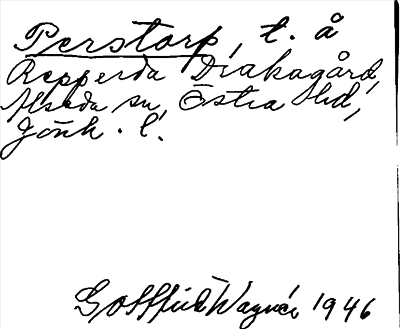 Perstorp, t. å
Repperda Drakagård,
Alseda sn, Östra hd,
Jönk. l.
Gottfrid Wagnér 1946